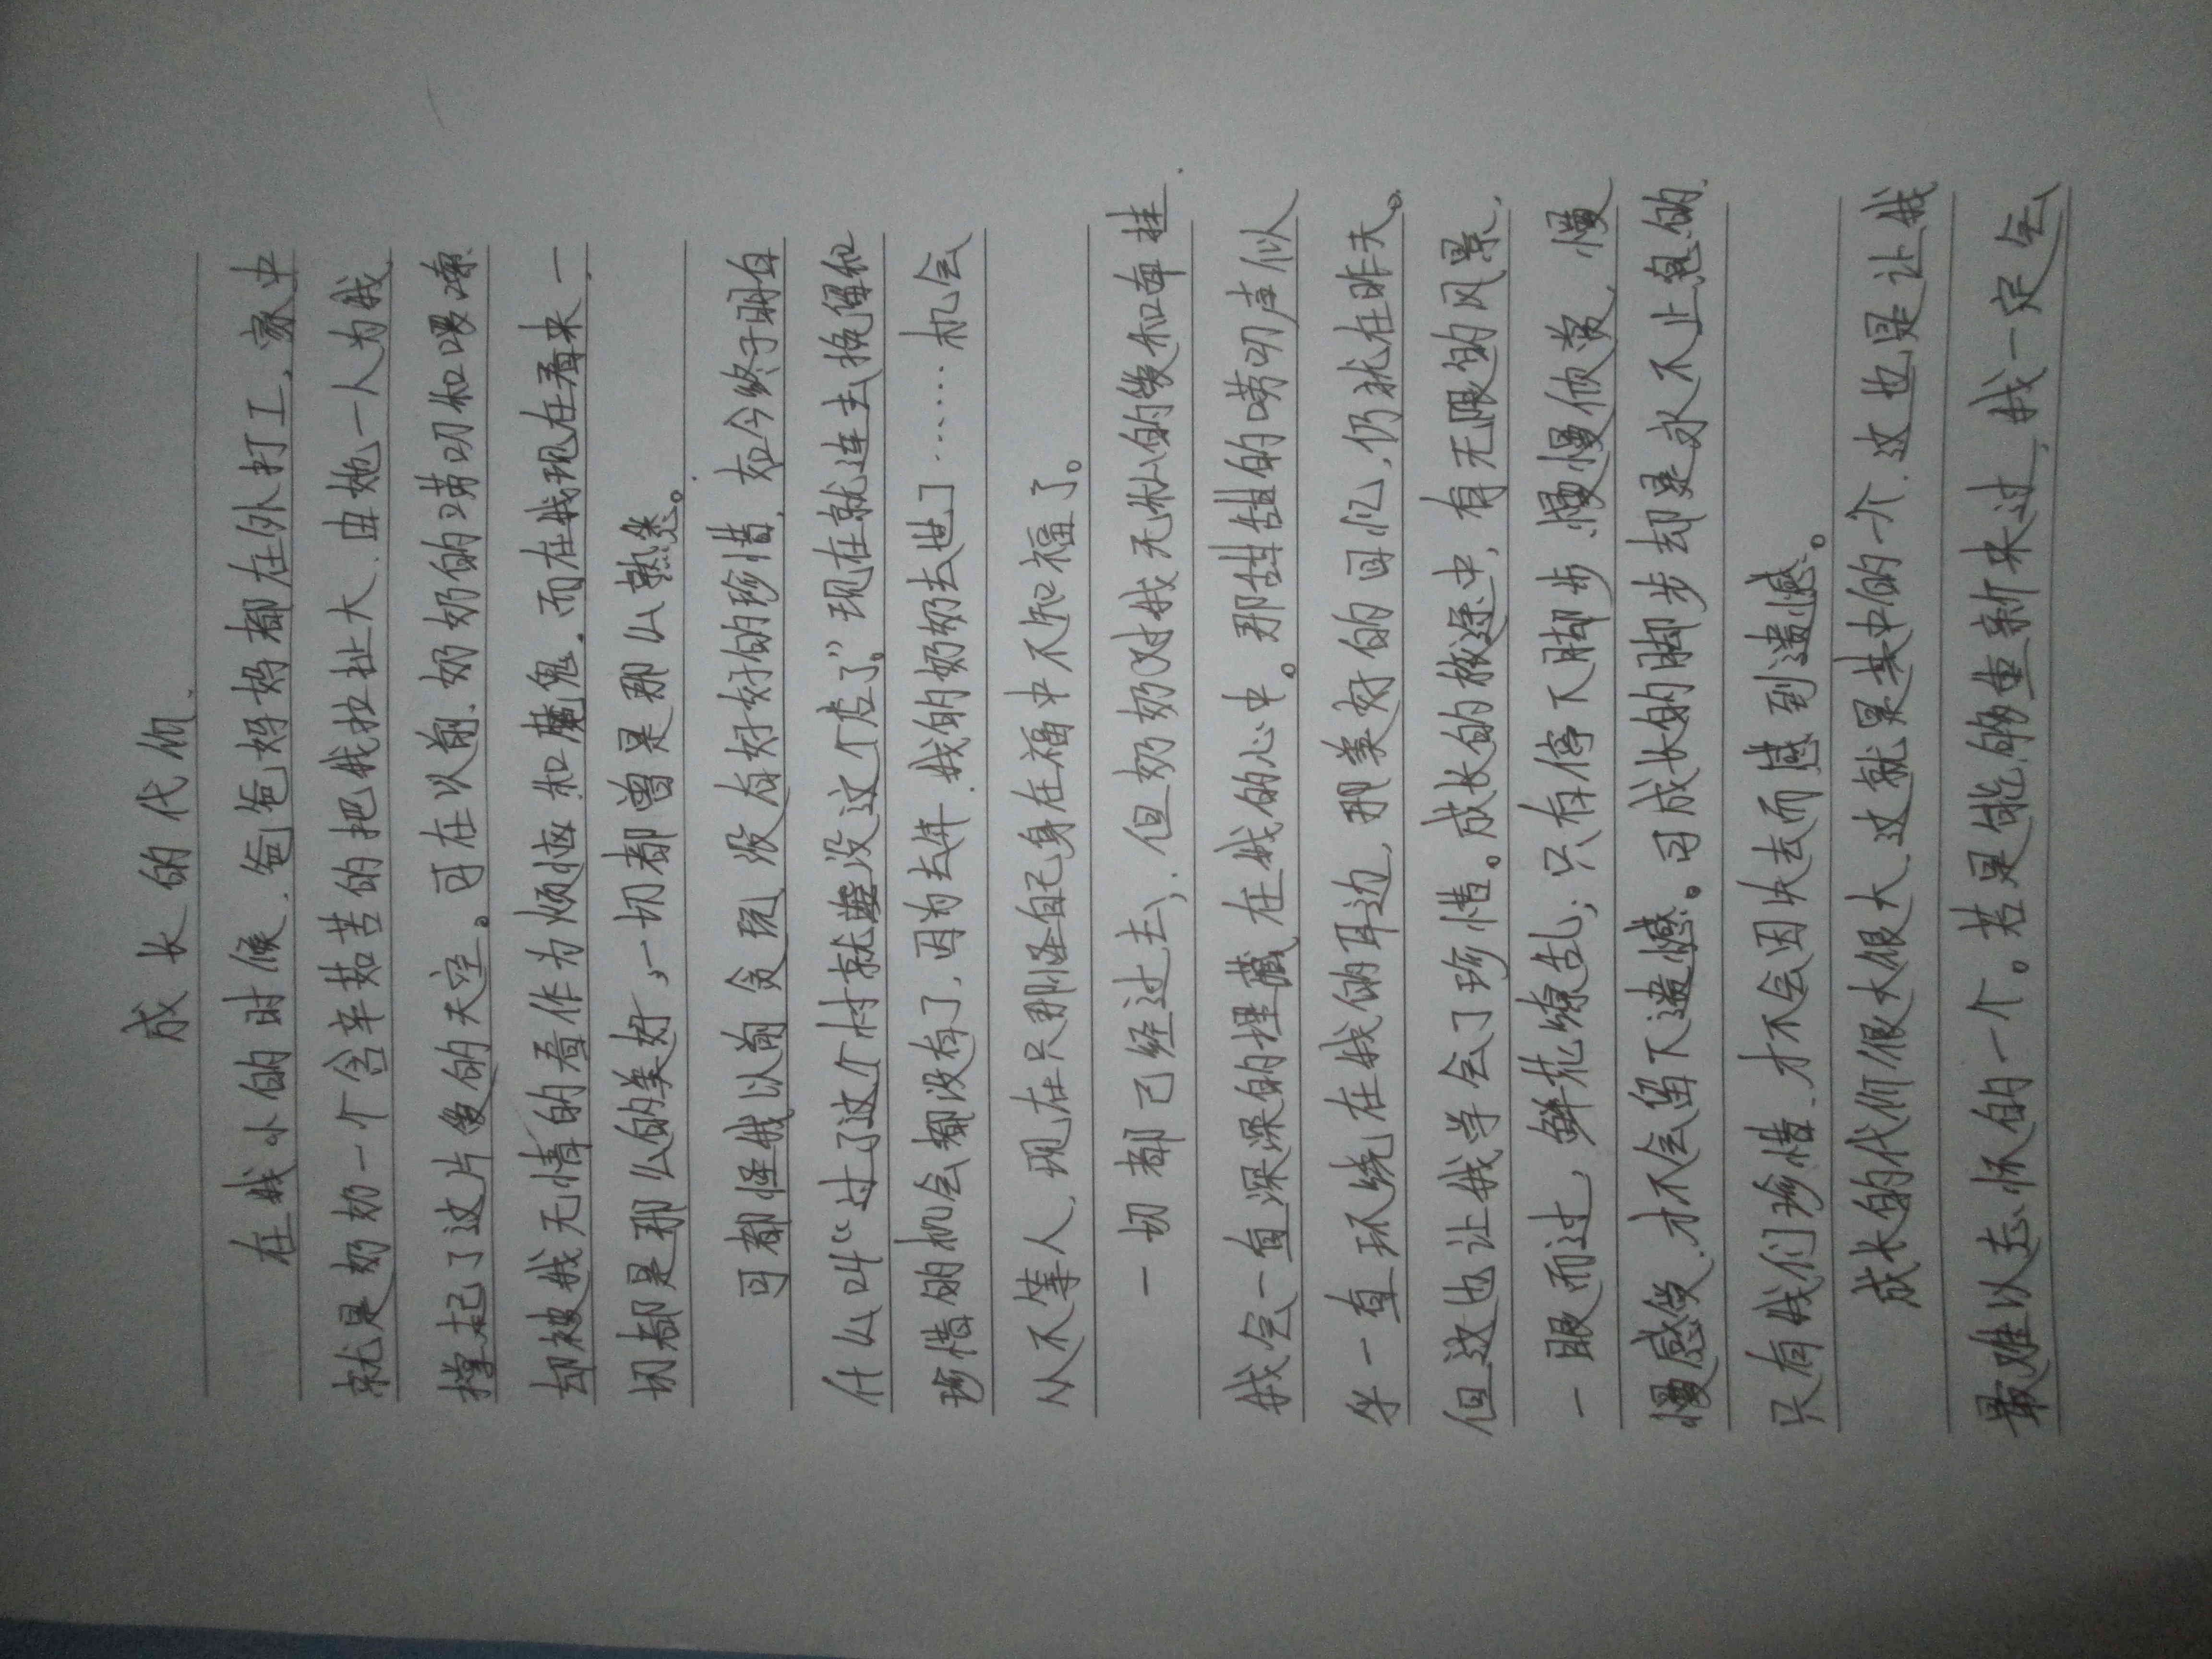 成长的代价
在我小的时候、爸爸妈妈都在外打工、家中
就是奶奶一个含辛茹苦的把我拉扯大、由她一人为我
撑起了这片爱的天空。可在以前、奶奶的唠叨和喂嗽
却被我无情的看作为烦恼和魔鬼、而在我现在看来一
切都是那么的美好，一切都曾是那么熟悉。
可都怪我以前贪玩、没有好好的珍惜、如今终于明白
什么叫“过了这个村就没这个店了。”现在就连去挽留和
珍惜的机会都没有了，因为去年、我的奶奶去世了……机会
从不等人、现在只那怪自己身在福中不知福了。
一切都己经过去，但奶奶对我无私的爱和牵挂
我会一直深深的埋藏在我的心中。那甜甜的唠叨声似
乎一直环绕在我的耳边，那美好的回忆，仍就在昨天。
但这也让我学会了珍惜。成长的旅途中，有无限的风景，
一眼而过，鲜花缭乱；只有停下脚步、慢慢倾赏、慢
慢感受、才不会留下遗憾。可成长的脚步却是永不止息的、
只有我们珍惜、才不会因失去而感到遗憾。
成长的代价很大很大、这就是其中的一个、这也是让我
最难以忘怀的一个。若是能够重新来过、我一定会